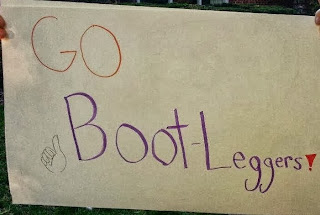 GO
Boot-Leggers!